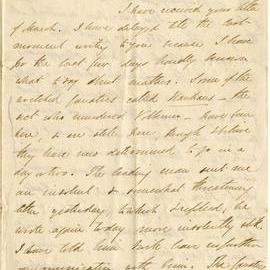 I have received your letter
of March. I have delayed till the last
moment writing to you because I have
for the last few days hardly known
what to say about matters. Some of the
wretched fanatics called Hauhaus - the
act who murdered Volkner - have been
here, & are still here, though I believe
they have now determined to go in a
day or two. The leading man sent me
an insolent & somewhat threatening
letter yesterday, to which I replied, he
wrote again to day more insolently still.
I have told him I will have no further
communication with him. The